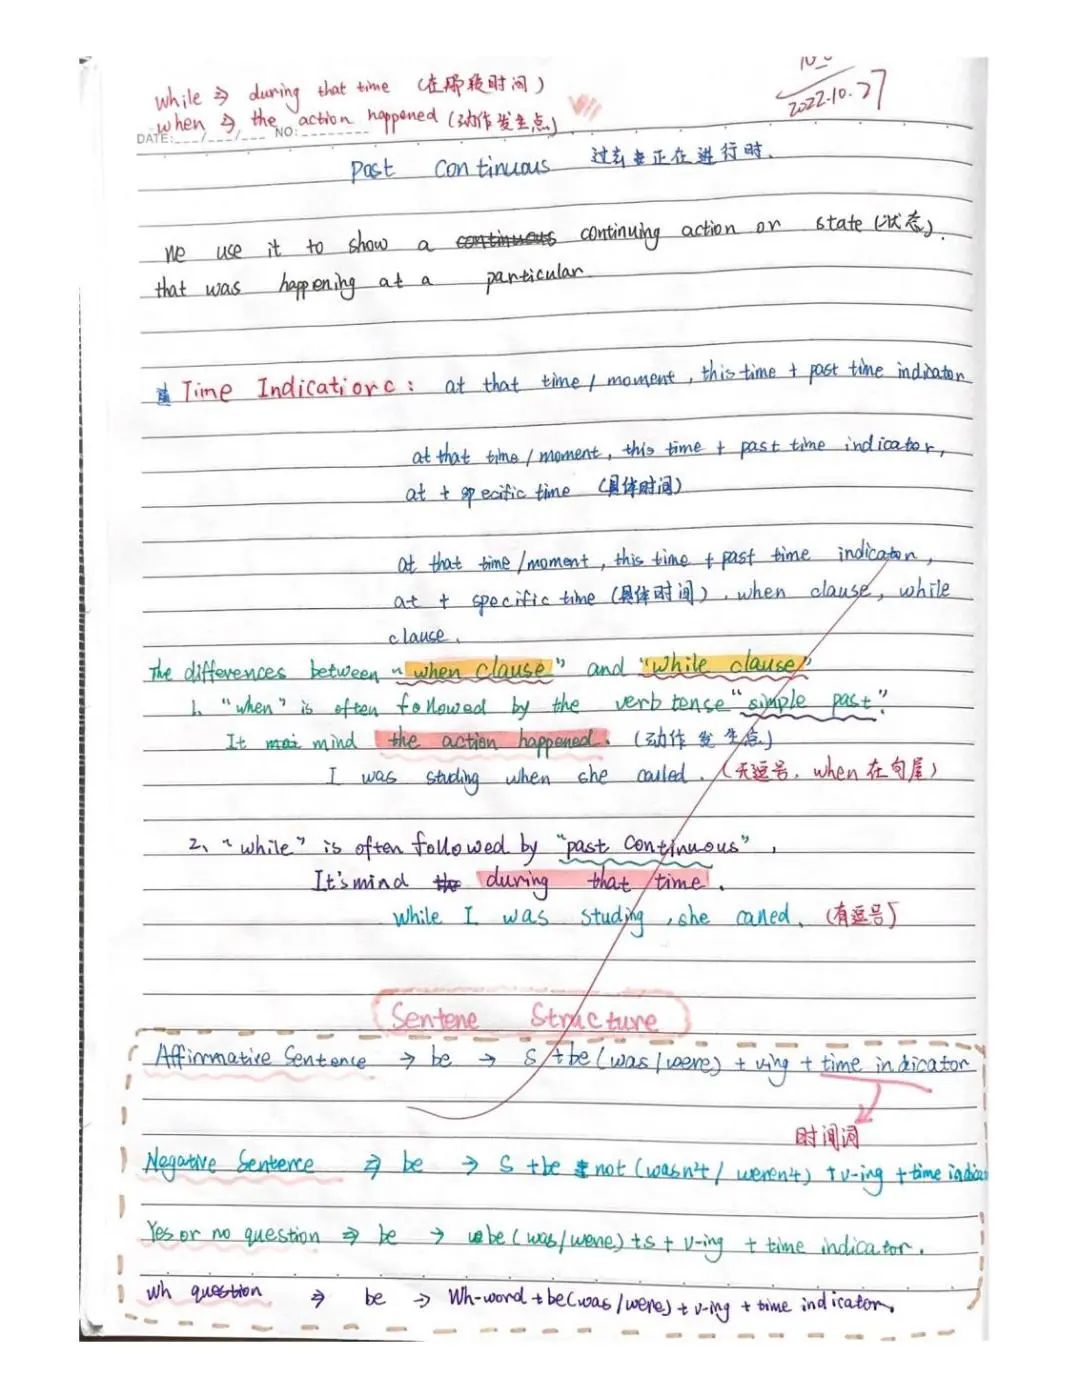 while ⇒ during that time (在那段时间)
2022.10.27
when ⇒ the action happened (动作发生点)
DATE:___/___/___ NO:________
Past Continuous 过去正在进行时.
We use it to show a continuous continuing action or state (状态).
that was happening at a particular.
Time Indicatiorc: at that time / moment, this time + past time indicator
at that time / moment, this time + past time indicator,
at + specific time (具体时间)
at that time / moment, this time + past time indicator,
at + specific time (具体时间). when clause, while
clause.
The differences between "when clause" and "while clause"
1. "when" is often followed by the verb tense "simple past".
It mai mind the action happened. (动作发生点)
I was studing when she called. (无逗号, when 在句尾)
2、"while" is often followed by "past Continuous",
It's mind the during that time.
While I was studing, she called. (有逗号)
Sentene Structure
Affirmative Sentence → be → S + be (was / were) + v-ing + time indicator
时间词
Negative Sentence ⇒ be → S + be + not (wasn't / weren't) + v-ing + time indica
Yes or no question ⇒ be → be (was / were) + s + v-ing + time indicator.
Wh question ⇒ be → Wh-word + be (was / were) + v-ing + time indicator.